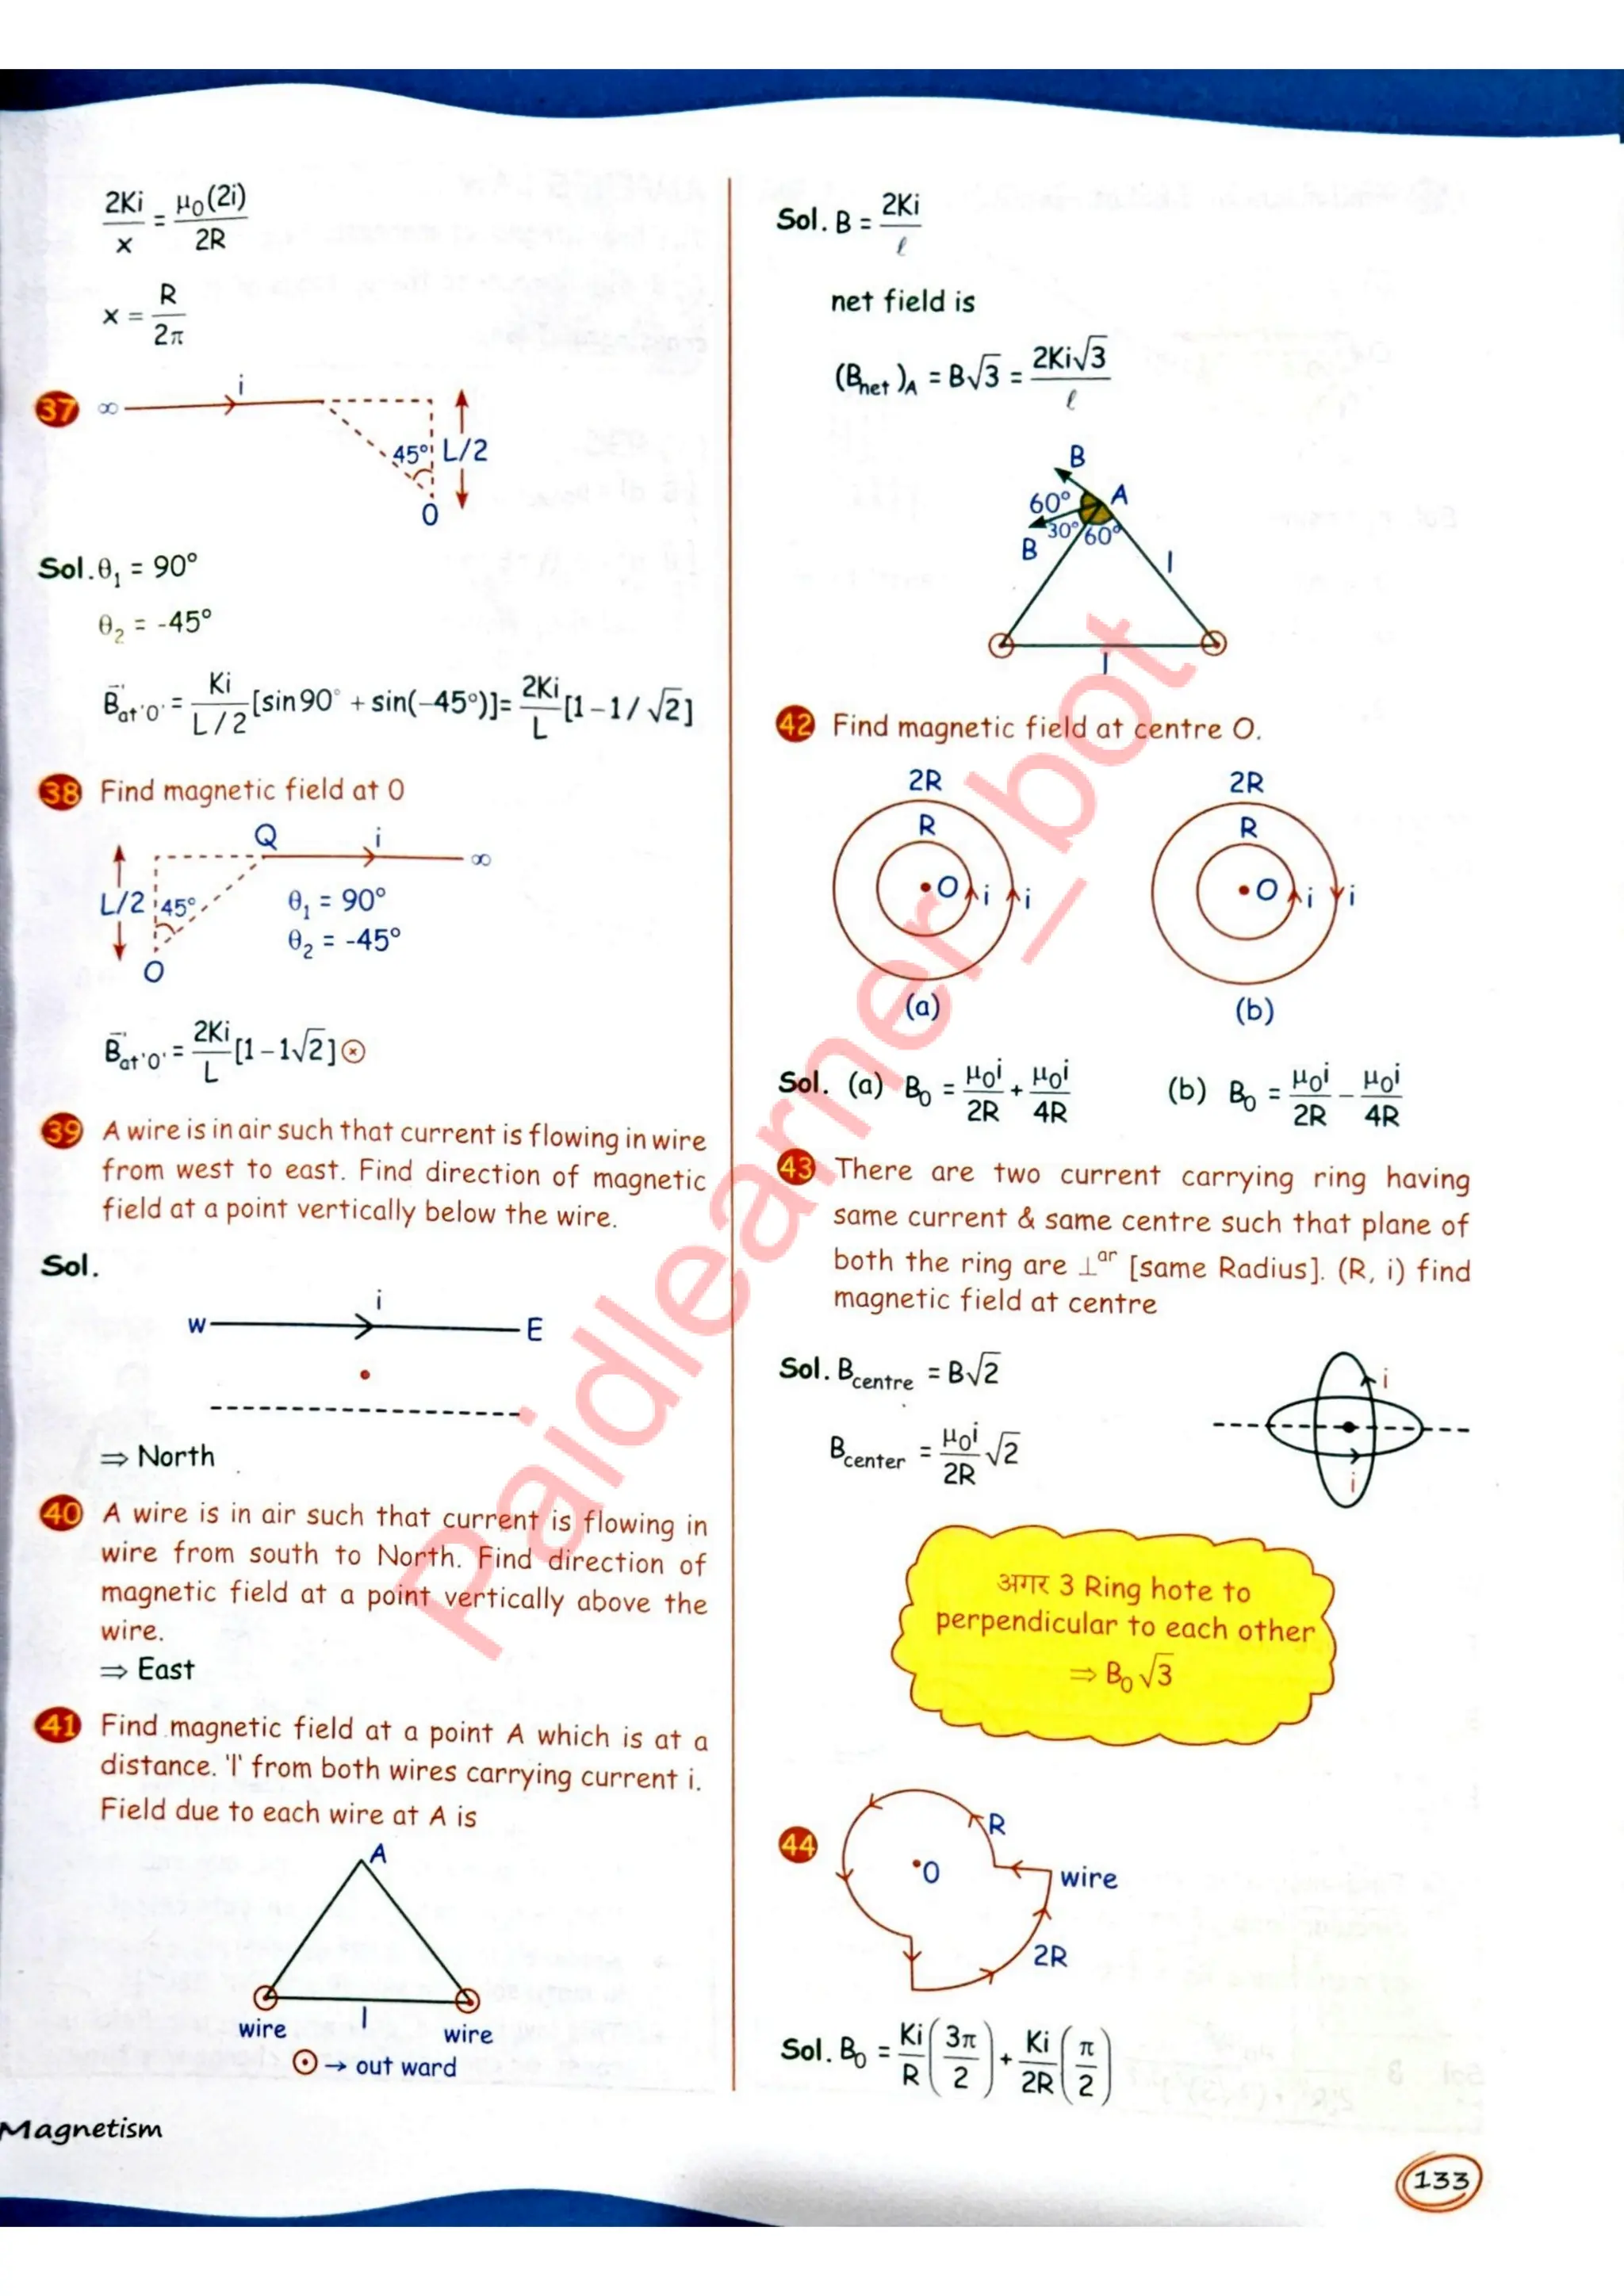 2Ki/x = μ₀(2i)/2R
x = R/2π
37 ∞ i 45° L/2 O
Sol. θ₁ = 90°
θ₂ = -45°
B⃗at'O' = Ki/(L/2) [sin90° + sin(–45°)] = 2Ki/L [1–1/√2]
38 Find magnetic field at O
Q i ∞
L/2 45° θ₁ = 90°
θ₂ = -45°
O
B⃗at'O' = 2Ki/L [1–1√2] ⊗
39 A wire is in air such that current is flowing in wire
from west to east. Find direction of magnetic
field at a point vertically below the wire.
Sol.
i
W E
⇒ North
40 A wire is in air such that current is flowing in
wire from south to North. Find direction of
magnetic field at a point vertically above the
wire.
⇒ East
41 Find magnetic field at a point A which is at a
distance. 'l' from both wires carrying current i.
Field due to each wire at A is
A
l
wire wire
⊙ → out ward
Sol. B = 2Ki/ℓ
net field is
(Bnet)A = B√3 = 2Ki√3/ℓ
B
60° A
B 30° 60° l
l
42 Find magnetic field at centre O.
2R 2R
R R
O i i O i i
(a) (b)
Sol. (a) B₀ = μ₀i/2R + μ₀i/4R (b) B₀ = μ₀i/2R – μ₀i/4R
43 There are two current carrying ring having
same current & same centre such that plane of
both the ring are ⊥ᵃʳ [same Radius]. (R, i) find
magnetic field at centre
Sol. Bcentre = B√2
i
Bcenter = μ₀i/2R √2
i
अगर 3 Ring hote to
perpendicular to each other
⇒ B₀√3
44 R
O wire
2R
Sol. B₀ = Ki/R (3π/2) + Ki/2R (π/2)
Magnetism
133
Paidlearner_bot